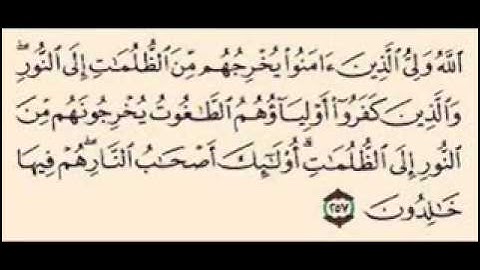 ٱللَّهُ وَلِىُّ ٱلَّذِينَ ءَامَنُوا۟ يُخْرِجُهُم مِّنَ ٱلظُّلُمَـٰتِ إِلَى ٱلنُّورِ ۖ
وَٱلَّذِينَ كَفَرُوٓا۟ أَوْلِيَآؤُهُمُ ٱلطَّـٰغُوتُ يُخْرِجُونَهُم مِّنَ
ٱلنُّورِ إِلَى ٱلظُّلُمَـٰتِ ۗ أُو۟لَـٰٓئِكَ أَصْحَـٰبُ ٱلنَّارِ ۖ هُمْ فِيهَا
خَـٰلِدُونَ ٢٥٧